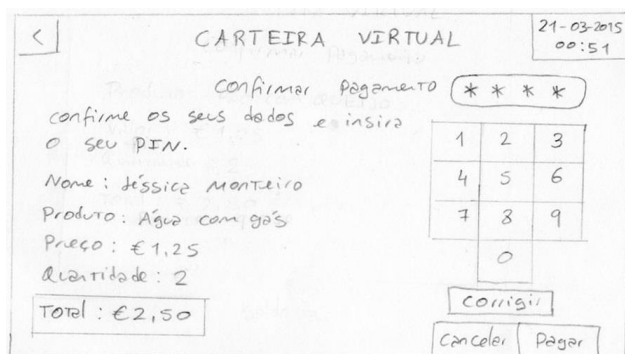 <
CARTEIRA VIRTUAL
21-03-2015
00:51
Confirmar Pagamento
* * * *
confirme os seus dados e insira
o seu PIN.
Nome: Jéssica Monteiro
Produto: Água com gás
Preço: €1,25
Quantidade: 2
Total: €2,50
1 2 3
4 5 6
7 8 9
0
Corrigir
Cancelar Pagar